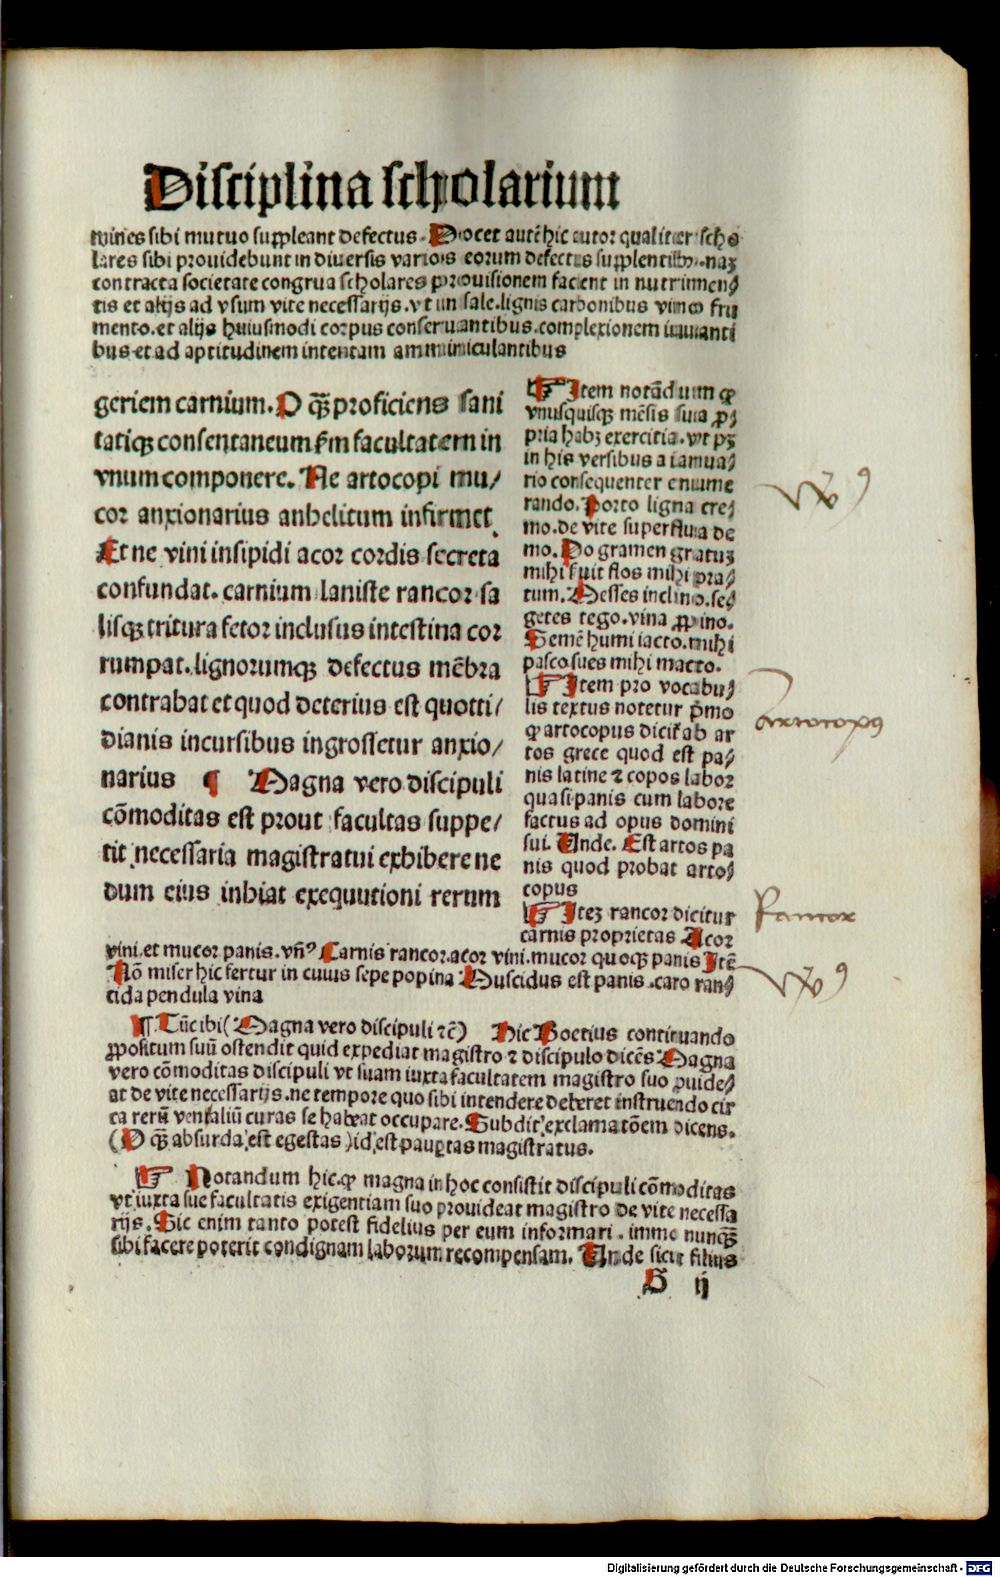 Disciplina scholarium
mines sibi mutuo suppleant defectus. Docet autē hic autor qualiter scho
lares sibi prouidebunt in diuersis varijs eorum defectus supplentibꝰ. naꝫ
contracta societate congrua scholares prouisionem facient in nutrimen⸗
tis et alijs ad vsum vite necessarijs. vt in sale. lignis carbonibus vino fru
mento. et alijs huiusmodi corpus conseruantibus. complexionem iuuanti
bus et ad aptitudinem intentam amminiculantibus
geriem carnium. O q̄ꝫ proficiens sani
tatiqꝫ consentaneum fm facultatem in
vnum componere. Ne artocopi mu/
cor anxionarius anhelitum infirmet.
Et ne vini insipidi acor cordis secreta
confundat. carnium laniste rancor sa
lisqꝫ tritura fetor inclusus intestina cor
rumpat. lignorumqꝫ defectus mēbra
contrahat et quod deterius est quotti/
dianis incursibus ingrossetur anxio/
narius ¶ Magna vero discipuli
cōmoditas est prout facultas suppe/
tit necessaria magistratui exhibere ne
dum eius inhiat exequutioni rerum
☞ Item notādum ꝙ
vnusquisqꝫ mēsis sua ꝓ⸗
pria habꝫ exercitia. vt pꝫ
in his versibus a ianua⸗
rio consequenter enume
rando. Porto ligna cre⸗
mo. de vite superflua de
mo. Do gramen gratuꝫ
mihi fuit flos mihi pra⸗
tum. Messes inclino. se⸗
getes tego. vina ꝓpino.
Semē humi iacto. mihi
pasco sues mihi macto.
☞ Item pro vocabu⸗
lis textus notetur p̄mo
ꝙ artocopus dicit̄ ab ar
tos grece quod est pa⸗
nis latine ⁊ copos labor
quasi panis cum labore
factus ad opus domini
sui. Unde. Est artos pa
nis quod probat arto⸗
copus
☞ Iteꝫ rancor dicitur
carnis proprietas Acor
vini. et mucor panis. vn̄ꝰ Carnis rancor. acor vini. mucor quoqꝫ panis Itē
Nō miser hic fertur in cuius sepe popina Muscidus est panis. caro ran⸗
cida pendula vina
¶ Tūc ibi (Magna vero discipuli ⁊c̄) Hic Boetius continuando
ꝓpositum suū ostendit quid expediat magistro ⁊ discipulo dicēs Magna
vero cōmoditas discipuli vt suam iuxta facultatem magistro suo ꝓuide⸗
at de vite necessarijs. ne tempore quo sibi intendere deberet instruendo cir
ca rerū venialiū curas se habeat occupare. Subdit exclamatōem dicens.
(O q̄ꝫ absurda est egestas) id est paupertas magistratus.
☞ Notandum hic ꝙ magna in hoc consistit discipuli cōmoditas
vt iuxta sue facultatis exigentiam suo prouideat magistro de vite necessa
rijs. Sic enim tanto potest fidelius per eum informari. immo nunqꝫ
sibi facere poterit condignam laborum recompensam. Unde sicut filius
B ij
Artocopꝰ
Rancor
Digitalisierung gefördert durch die Deutsche Forschungsgemeinschaft - DFG